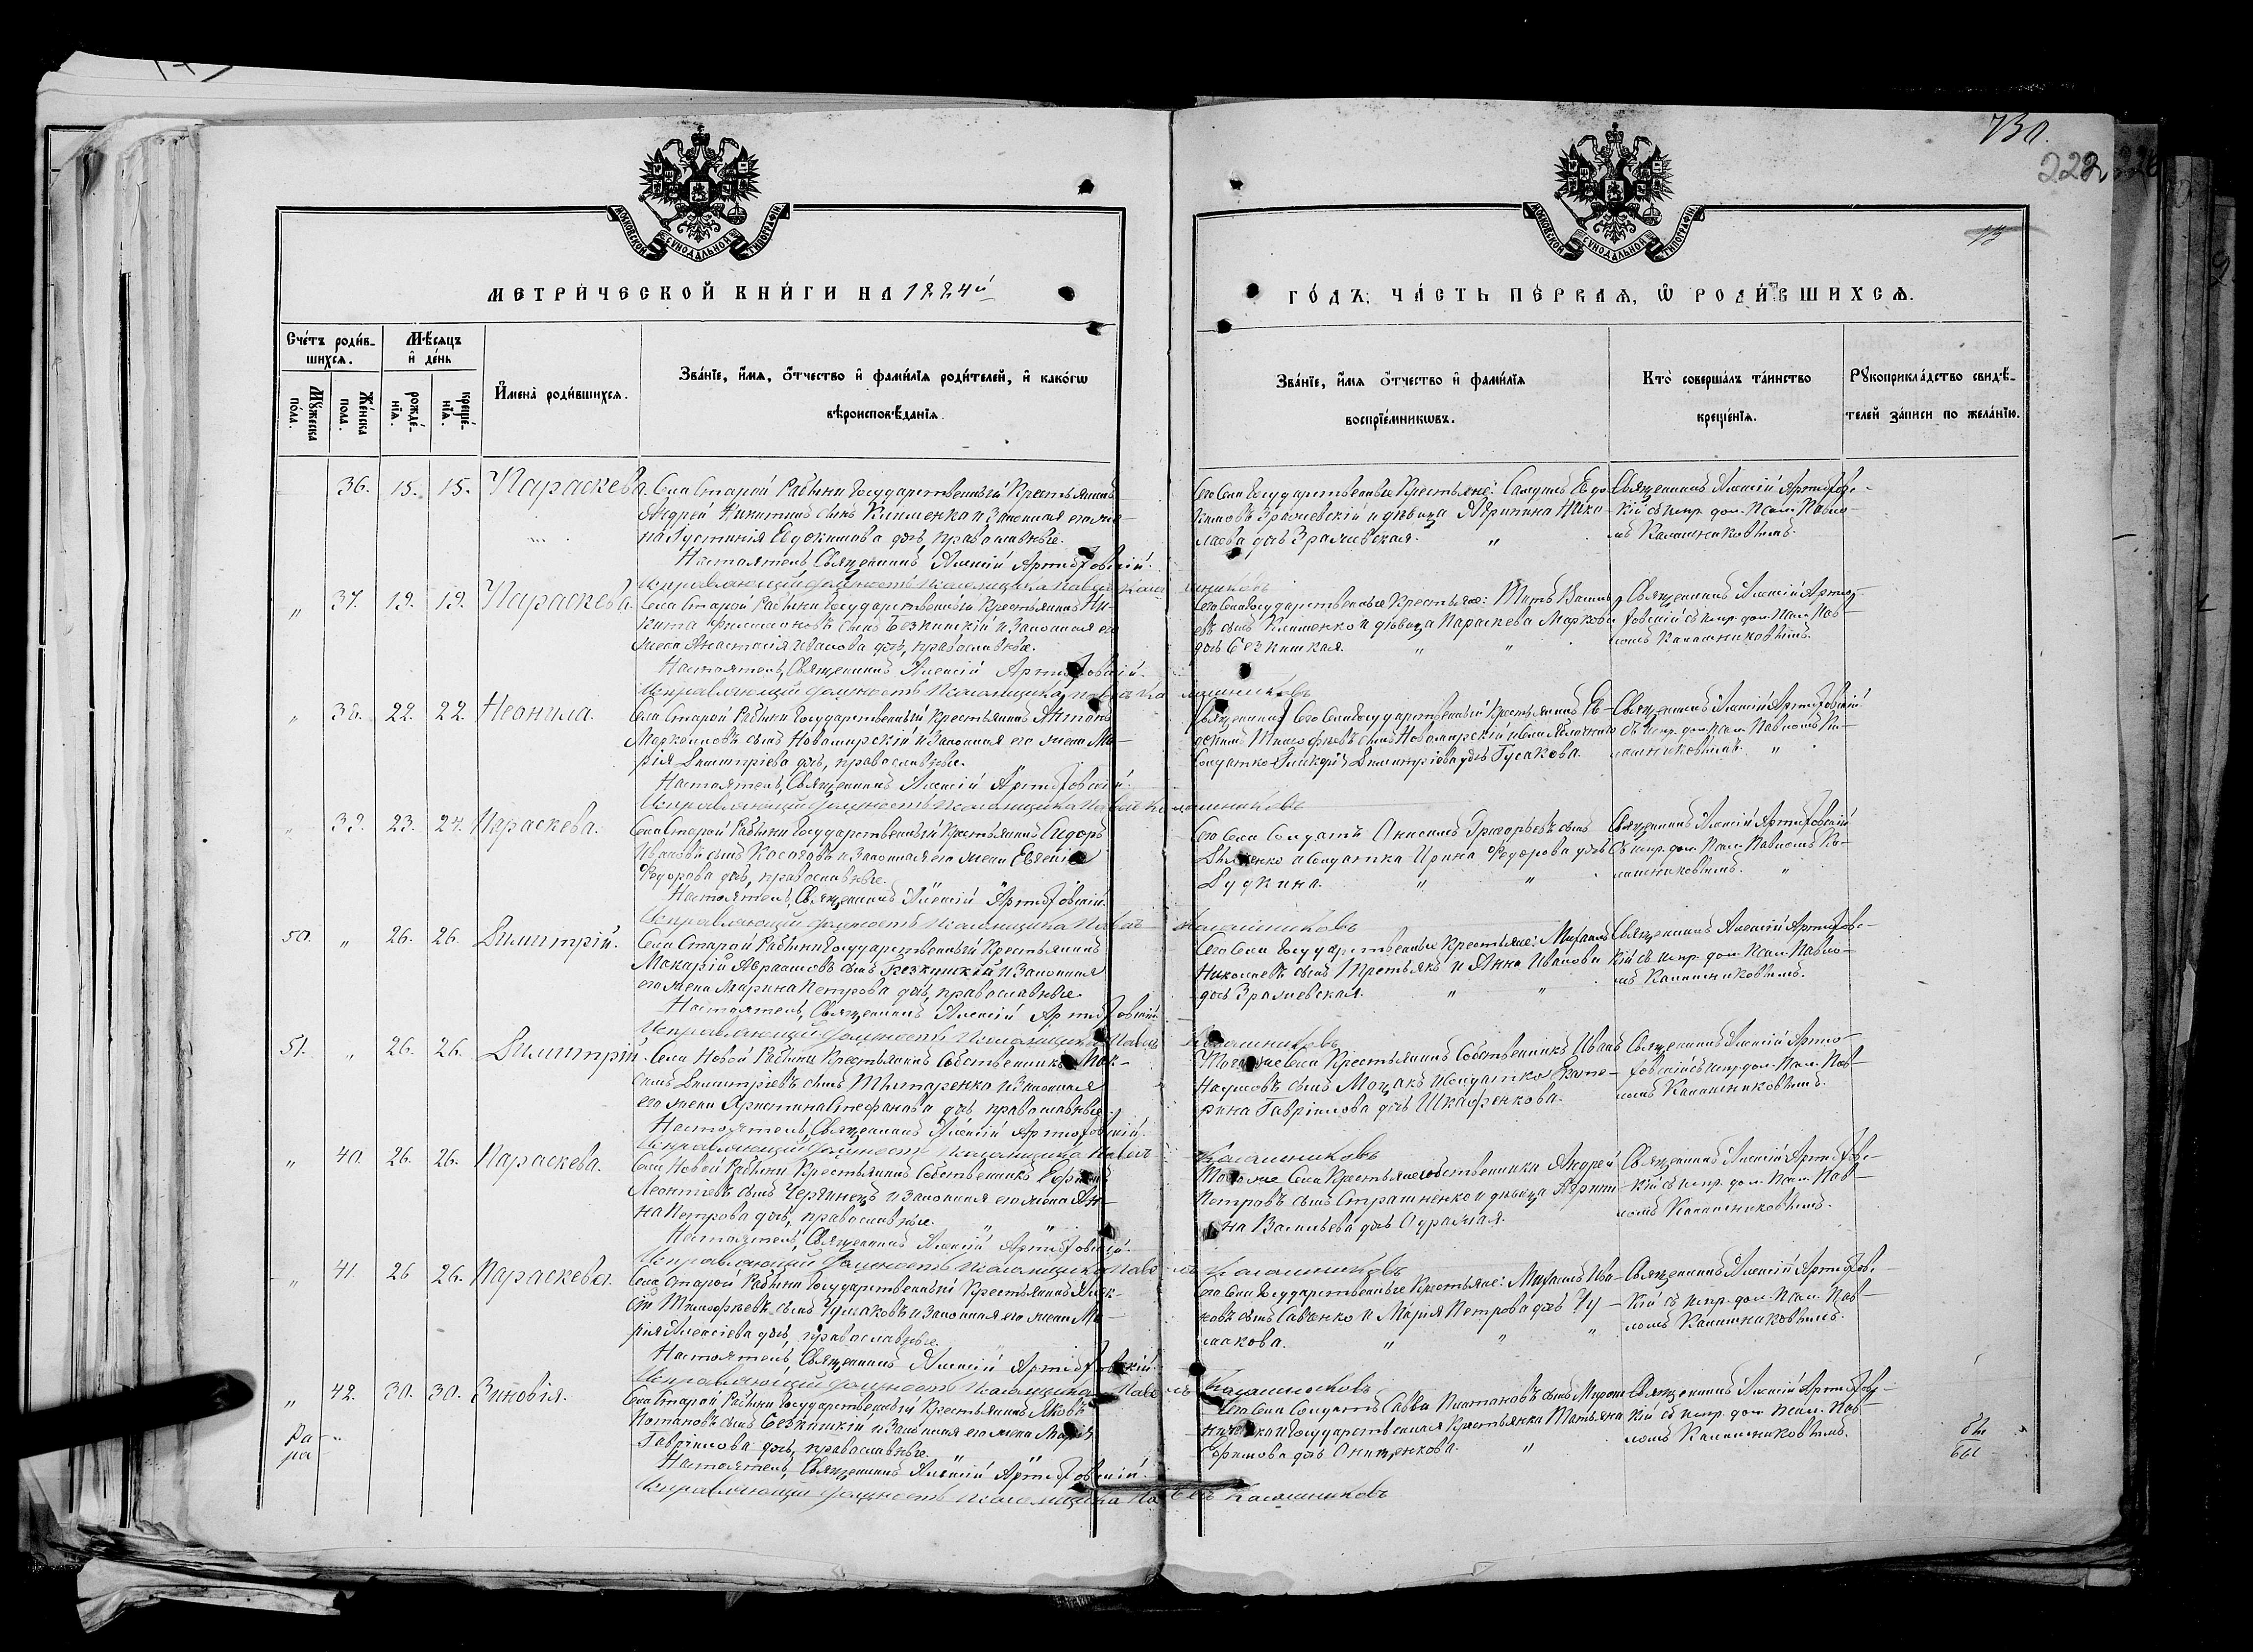 730.
222
МОСКОВСКОЙ СУНОДАЛЬНОЙ ТИПОГРАФІИ
МОСКОВСКОЙ СУНОДАЛЬНОЙ ТИПОГРАФІИ
МЕТРИЧЕСКОЙ КНИГИ НА 1884й
ГОДЪ, ЧАСТЬ ПЕРВАЯ, Ѡ РОДИВШИХСЯ.
Счетъ родившихся.
Мѣсяцъ и день
Имена родившихся.
Званіе, имя, отчество и фамилія родителей, и какогѡ вѣроисповѣданія.
Мужеска пола.
Женска пола.
рожденія.
крещенія.
Званіе, имя отчество и фамилія воспріемникѡвъ.
Кто совершалъ таинство крещенія.
Рукоприкладство свидѣтелей записи по желанію.
36. 15. 15. Параскева.
Села Старой Рабыни Государственный Крестьянинъ
Андрей Никитинъ сынъ Клименко и Законная его же-
на Іустинія Евдокимова дочь, православные.
Настоятель, Священникъ Алексій Артюховскій.
Исправляющій должность Псаломщика Павелъ Калашниковъ
Сего Села Государственные Крестьяне: Самуилъ Евдо-
кимовъ Зражевскій и дѣвица Агрипина Нико-
лаева дочь Зражевская.
Священникъ Алексій Артюховс-
кій съ испр. дол. Псал. Павло-
мъ Калашниковымъ.
" 37. 19. 19. Параскева.
Села Старой Рабыни Государственный Крестьянинъ Ни-
кита Филимоновъ сынъ Безкишкій и Законная его
жена Анастасія Иванова дочь, православные.
Настоятель, Священникъ Алексій Артюховскій.
Исправляющій должность Псаломщика Павелъ Калашниковъ
Сего Села Государственные Крестьяне: Титъ Василь-
евъ сынъ Клименко и дѣвица Параскева Маркова
дочь Безкишкая.
Священникъ Алексій Артю-
ховскій съ испр. дол. Псал. Пав-
ломъ Калашниковымъ.
" 38. 22. 22. Неонила.
Села Старой Рабыни Государственный Крестьянинъ Антонъ
сынъ Новомирскій и Законная его жена Ма-
рія Димитріева дочь, православные.
Настоятель, Священникъ Алексій Артюховскій.
Исправляющій должность Псаломщика Павелъ Калашниковъ
Сего Села Государственный Крестьянинъ Ев-
докимъ Тимофѣевъ сынъ Новомирскій и
Солдатка Димитріева дочь Гусакова.
Священникъ Алексій Артюховскій
съ испр. дол. Псал. Павломъ Ка-
лашниковымъ. "
" 39. 23. 24. Параскева.
Села Старой Рабыни Государственный Крестьянинъ Сидоръ
Ивановъ сынъ Касаловъ и Законная его жена Евгенія
Федорова дочь, православные.
Настоятель, Священникъ Алексій Артюховскій.
Исправляющій должность Псаломщика Павелъ Калашниковъ
Сего Села Солдатъ Анисимъ Григорьевъ сынъ
и Солдатка Ирина Федорова дочь
Дудкина.
Священникъ Алексій Артюховскій
съ испр. дол. Псал. Павломъ Ка-
лашниковымъ. "
50. " 26. 26. Димитрій.
Села Старой Рабыни Государственный Крестьянинъ
Макарій Авраамовъ сынъ Безкишкій и Законная
его жена Марина Петрова дочь, православные.
Настоятель, Священникъ Алексій Артюховскій.
Исправляющій должность Псаломщика Павелъ Калашниковъ
Сего Села Государственные Крестьяне: Михаилъ
Николаевъ сынъ Третьякъ и Анна Иванова
дочь Зражевская.
Священникъ Алексій Артюховс-
кій съ испр. дол. Псал. Павло-
мъ Калашниковымъ.
51. " 26. 26. Димитрій.
Села Новой Рабыни Крестьянинъ Собственникъ Мак-
симъ Димитріевъ сынъ Титаренко и Законная
его жена Христина Стефанова дочь, православные.
Настоятель, Священникъ Алексій Артюховскій.
Исправляющій должность Псаломщика Павелъ Калашниковъ
Того же Села Крестьянинъ Собственникъ Иванъ
Наумовъ сынъ Моцакъ и Солдатка Екате-
рина Гавріилова дочь Шкафенкова.
Священникъ Алексій Артю-
ховскій съ испр. дол. Псал. Пав-
ломъ Калашниковымъ.
" 40. 26. 26. Параскева.
Села Новой Рабыни Крестьянинъ Собственникъ Ефремъ
Леонтіевъ сынъ Чернинецъ и Законная его жена Ан-
на Петрова дочь, православные.
Настоятель, Священникъ Алексій Артюховскій.
Исправляющій должность Псаломщика Павелъ Калашниковъ
Того же Села Крестьяне собственники Андрей
Петровъ сынъ Страшненко и дѣвица Агрипи-
на Васильева дочь
Священникъ Алексій Артюховс-
кій съ испр. дол. Псал. Пав-
ломъ Калашниковымъ.
" 41. 26 26. Параскева.
Села Старой Рабыни Государственный Крестьянинъ Алек-
сій Тимофѣевъ сынъ Чумаковъ и Законная его жена Ма-
рія Алексіева дочь, православные.
Настоятель, Священникъ Алексій Артюховскій.
Исправляющій должность Псаломщика Павелъ Калашниковъ
Сего Села Государственные Крестьяне: Михаилъ Ива-
новъ сынъ Савенко и Марія Петрова дочь Чу-
макова.
Священникъ Алексій Артюховс-
кій съ испр. дол. Псал. Пав-
ломъ Калашниковымъ.
" 42. 30. 30. Зиновія.
Села Старой Рабыни Государственный Крестьянинъ Яковъ
Потаповъ сынъ Безкишкій и Законная его жена Марія
Гавріилова дочь, православные.
Настоятель, Священникъ Алексій Артюховскій.
Исправляющій должность Псаломщика Павелъ Калашниковъ
Сего Села Солдатъ Савва Платоновъ сынъ Мирош-
ниченко и Государственная Крестьянка Татьяна
Ефимова дочь Онищенкова.
Священникъ Алексій Артюховс-
кій съ испр. дол. Псал. Пав-
ломъ Калашниковымъ.